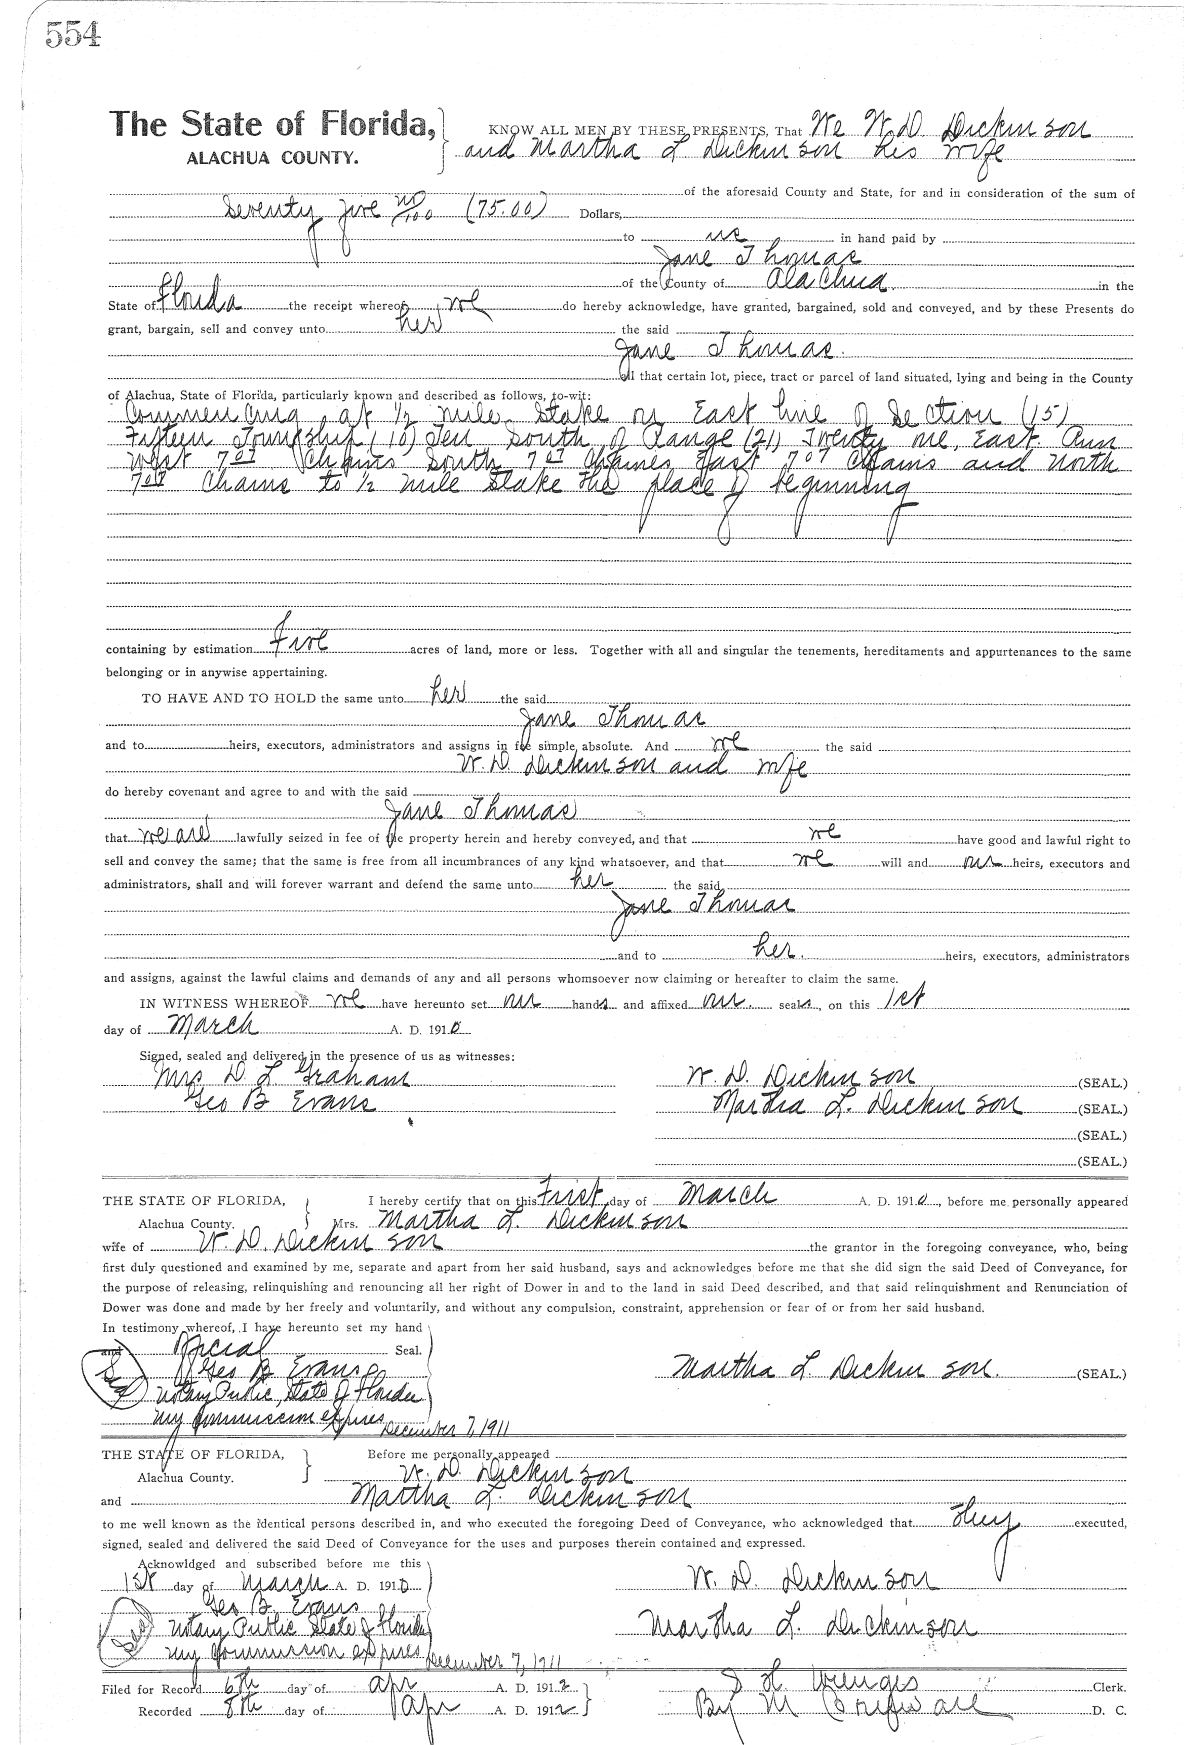 554
The State of Florida, KNOW ALL MEN BY THESE PRESENTS, That We W. D. Dickinson
ALACHUA COUNTY. and Martha L Dickinson his wife
of the aforesaid County and State, for and in consideration of the sum of
Seventy five no/100 (75.00) Dollars,
to us in hand paid by
Jane Thomas
of the County of Alachua in the
State of Florida the receipt whereof we do hereby acknowledge, have granted, bargained, sold and conveyed, and by these Presents do
grant, bargain, sell and convey unto her the said
Jane Thomas.
all that certain lot, piece, tract or parcel of land situated, lying and being in the County
of Alachua, State of Florida, particularly known and described as follows, to-wit:
Commencing at 1/2 mile Stake on East line of Section (15)
Fifteen Township (10) Ten South of Range (21) Twenty one, East. Run
West 7 07 Chains South 7 07 Chaines East 7 07 Chains and North
7 07 Chains to 1/2 mile Stake the place of beginning
containing by estimation Five acres of land, more or less. Together with all and singular the tenements, hereditaments and appurtenances to the same
belonging or in anywise appertaining.
TO HAVE AND TO HOLD the same unto her the said
Jane Thomas
and to heirs, executors, administrators and assigns in fee simple absolute. And we the said
W. D. Dickinson and wife
do hereby covenant and agree to and with the said
Jane Thomas
that we are lawfully seized in fee of the property herein and hereby conveyed, and that we have good and lawful right to
sell and convey the same; that the same is free from all incumbrances of any kind whatsoever, and that we will and our heirs, executors and
administrators, shall and will forever warrant and defend the same unto her the said
Jane Thomas
and to her. heirs, executors, administrators
and assigns, against the lawful claims and demands of any and all persons whomsoever now claiming or hereafter to claim the same.
IN WITNESS WHEREOF we have hereunto set our hands and affixed our seals, on this 1st
day of March A. D. 1910
Signed, sealed and delivered in the presence of us as witnesses:
Mrs D. L Graham W. D. Dickinson (SEAL.)
Geo B Evans Martha L. Dickinson (SEAL.)
(SEAL.)
(SEAL.)
THE STATE OF FLORIDA, I hereby certify that on this First day of March A. D. 1910, before me personally appeared
Alachua County. Mrs. Martha L. Dickinson
wife of W. D. Dickinson the grantor in the foregoing conveyance, who, being
first duly questioned and examined by me, separate and apart from her said husband, says and acknowledges before me that she did sign the said Deed of Conveyance, for
the purpose of releasing, relinquishing and renouncing all her right of Dower in and to the land in said Deed described, and that said relinquishment and Renunciation of
Dower was done and made by her freely and voluntarily, and without any compulsion, constraint, apprehension or fear of or from her said husband.
In testimony whereof, I have hereunto set my hand
and official Seal.
Seal Geo B Evans Martha L Dickinson. (SEAL.)
Notary Public, State of Florida
My Commission expires December 7, 1911
THE STATE OF FLORIDA, Before me personally appeared
Alachua County. W. D. Dickinson
and Martha L. Dickinson
to me well known as the identical persons described in, and who executed the foregoing Deed of Conveyance, who acknowledged that they executed,
signed, sealed and delivered the said Deed of Conveyance for the uses and purposes therein contained and expressed.
Acknowldged and subscribed before me this
1st day of March A. D. 1910 W. D. Dickinson
Geo B. Evans
Seal Notary Public State of Florida Martha L. Dickinson
My Commission expires December 7, 1911
Filed for Record 6th day of Apr A. D. 1912 S. H. Wienges Clerk.
Recorded 8th day of Apr A. D. 1912 By M D. C.